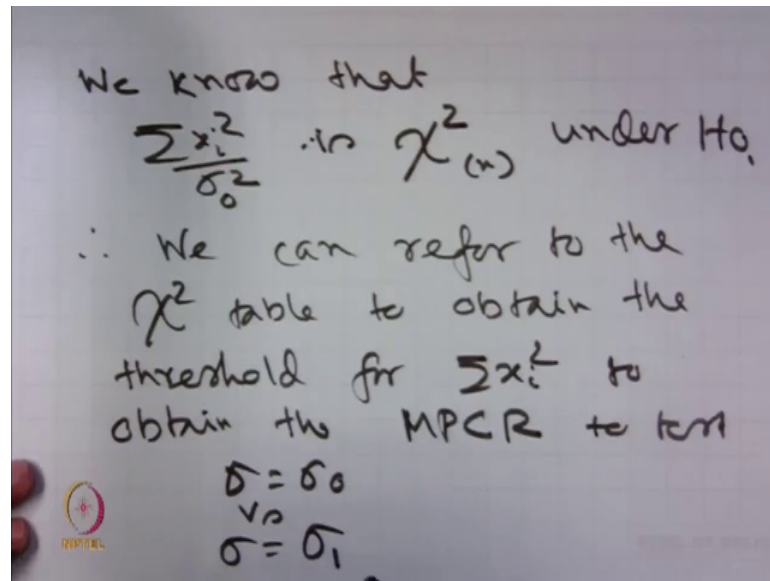 We know that
Σxᵢ²/σ₀² is χ²₍ₙ₎ under H₀.
∴ We can refer to the
χ² table to obtain the
threshold for Σxᵢ² to
obtain the MPCR to test
σ = σ₀
vs
σ = σ₁
NPTEL